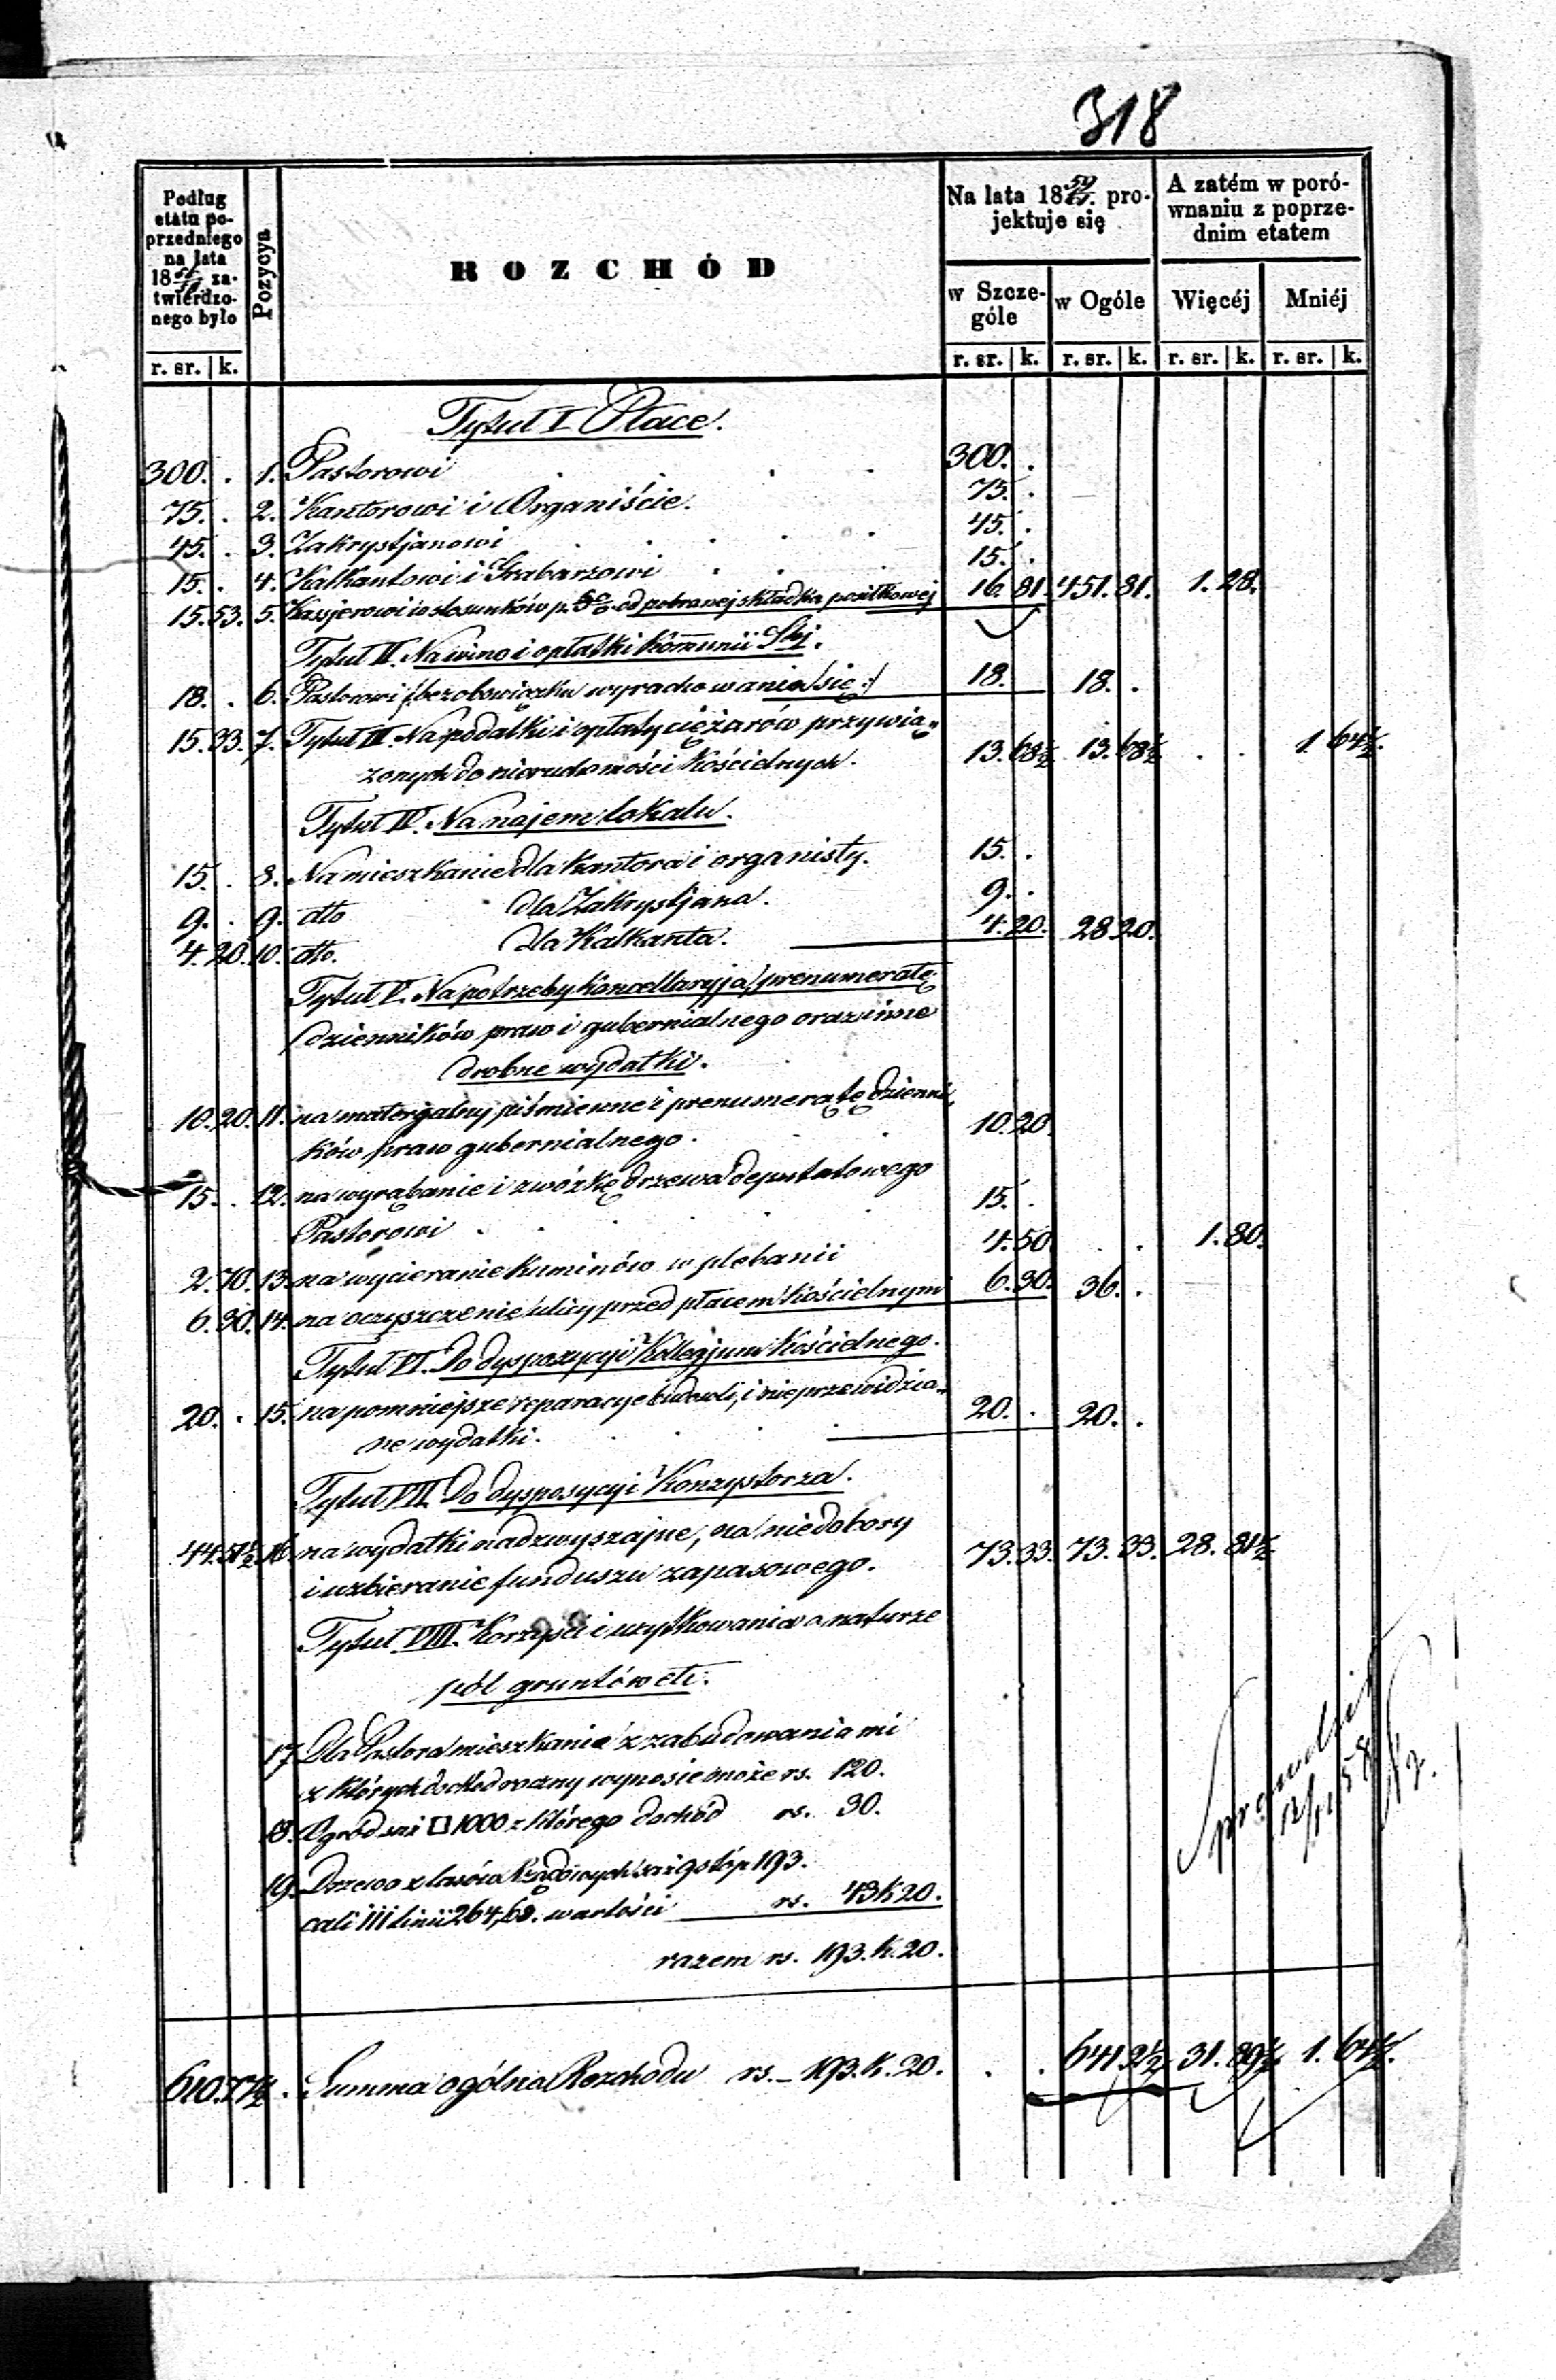 318
Podług etatu poprzedniego na lata 18 zatwierdzonego było
Pozycya
ROZCHÓD
Na lata 18 59/61. projektuje się
A zatém w porównaniu z poprzednim etatem
w Szczególe
w Ogóle
Więcéj
Mniéj
r. sr. k. r. sr. k. r. sr. k. r. sr. k. r. sr. k.
Tytuł I. Płace.
300. . 1. Pastorowi . . . 300. .
75. . 2. Kantorowi i Organiście. 75. .
45. . 3. Zakrystjanowi . . . . 45. .
15. . 4. Kalkantowi i Grabarzowi . . . 15. .
15. 53. 5. Kassjerowi w stosunków p. 5% od pobranej składka posiłkowej 16. 81. 451. 81. 1. 28.
Tytuł II. Na wino i opłatki Kommunii Stej.
18. . 6. Pastorowi /:bez obowiązku wyrachowania się:/ 18. 18. .
15. 33. 7. Tytuł III. Na podatki i opłaty ciężarów przywią„ 13. 68½ 13. 68½ . . 1. 64½.
zanych do nieruchomości Kościelnych.
Tytuł IV. Na najem lokalu.
15. . 8. Na mieszkanie dla kantora i organisty. 15. .
9. . 9. dtto dla Zakrystjana. 9. .
4. 20. 10. dtto. dla Kalkanta. 4. 20. 28. 20.
Tytuł V. Na potrzeby kancellaryja, prenumeratę
dzienników praw i gubernialnego oraz inne
drobne wydatki.
10. 20. 11. na materyalny piśmienne i prenumeratę dzienni„
ków praw gubernialnego. 10. 20.
15. . 12. na wyrąbanie i zwózkę drzewa deputatowego
Pastorowi . 15. .
2. 70. 13. na wycieranie kuminów w plebanii 4. 50. . . 1. 80.
6. 30. 14. na oczyszczenie ulicy przed placem Kościelnym 6. 30. 36. .
Tytuł VI. Do dyspozycyi Kollegjum Kościelnego.
20. . 15. na pomniejsze reparacye budowli, i nieprzewidzia„ 20. . 20. .
ne wydatki.
Tytuł VII. Do dysposycyi Konzystorza.
44. 51½ 16. na wydatki nadzwyszajne, na niedobory 73. 33. 73. 33. 28. 81½
i uzbieranie funduszu zapasowego.
Tytuł VIII. Korzyści i uzytkowania o naturze
pól gruntów etc.
17. Dla Pastora mieszkanie z zabudowaniami
z których dochód roczny wynosić może rs. 120.
18. Ogród saż □ 1000 z którego dochód rs. 30.
19. Drzewo z lasów Rządowych saż 9 stóp 193.
cali 111 linii 264,68. wartości rs. 43 k 20.
razem rs. 193. k. 20.
610. 77½. Summa ogólna Rozchodu rs. – 193. k. 20. . . 641. 2½ 31. 89½ 1. 64½.